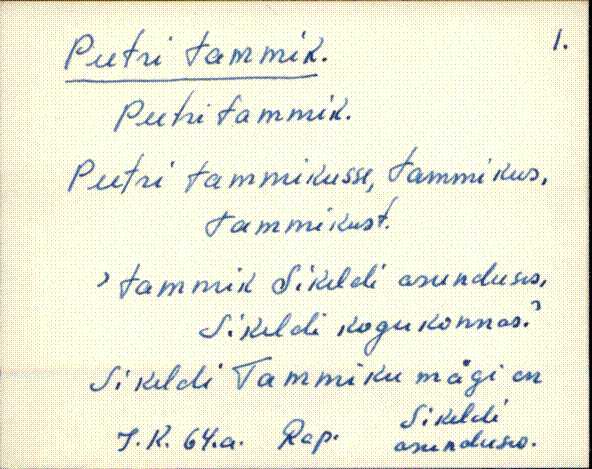 Peetri tammik. 1.
Peetri tammik.
Peetri tammikusse, tammikus,
tammikust.
, tammik Sikeldi asunduses,
Sikeldi kogukonnas.ʾ
Sikeldi Tammiku mägi on
J.K. 64.a. Rap. Sikeldi
asunduses.